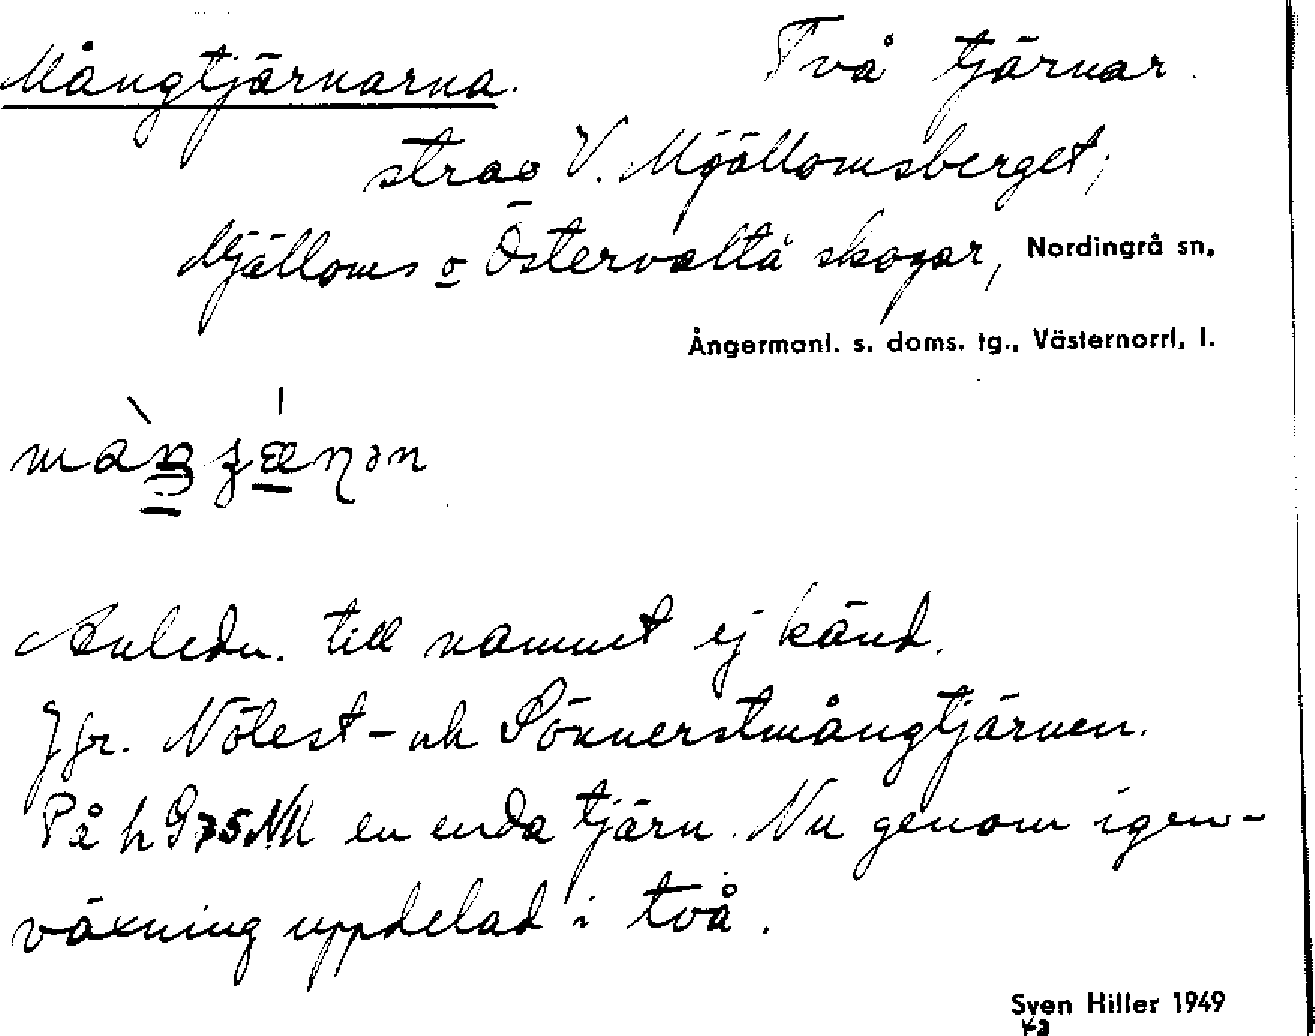 Mångtjärnarna. Två tjärnar
strax V. Mjällomsberget,
Mjälloms o Östervallå skogar, Nordingrå sn,
Ångermanl. s. doms. tg., Västernorrl. l.
Anledn. till namnet ej känd.
Jfr. Nölest- och Sönnerstmångtjärnen.
På h 975 NU en enda tjärn. Nu genom igen-
växning uppdelad i två.
Sven Hiller 1949